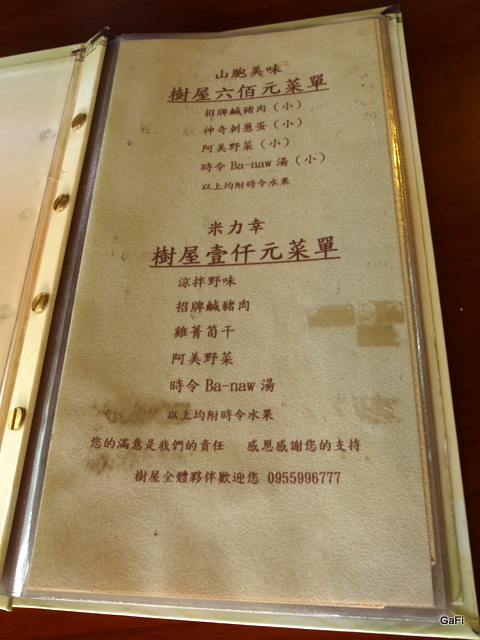 山胞美味
樹屋六佰元菜單
招牌鹹豬肉（小）
神奇刺蔥蛋（小）
阿美野菜（小）
時令 Ba-naw 湯（小）
以上均附時令水果
米力幸
樹屋壹仟元菜單
涼拌野味
招牌鹹豬肉
雞菁筍干
阿美野菜
時令 Ba-naw 湯
以上均附時令水果
您的滿意是我們的責任 感恩感謝您的支持
樹屋全體夥伴歡迎您 0955996777
GaFi